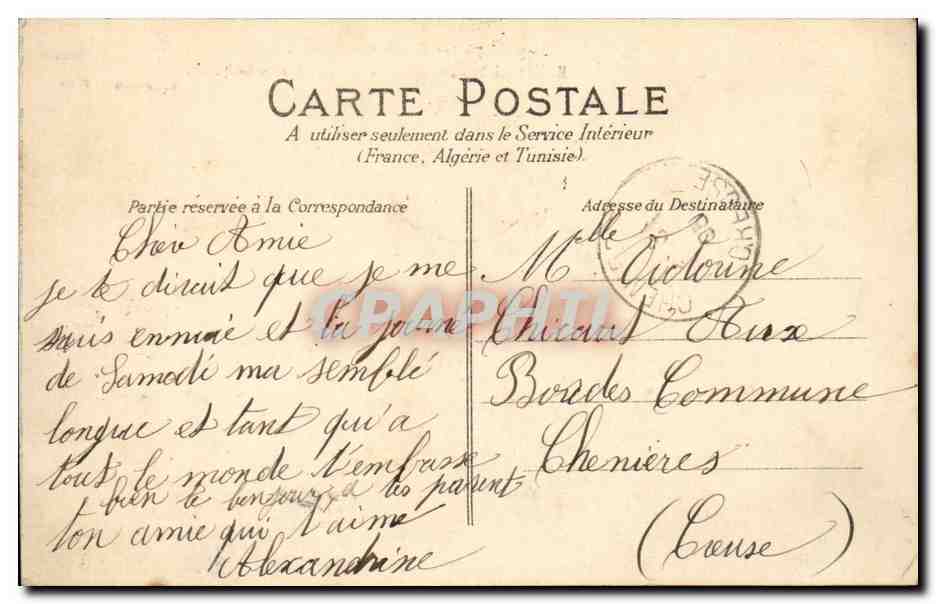 CARTE POSTALE
A utiliser seulement dans le Service Intérieur
(France, Algérie et Tunisie).
Partie réservée à la Correspondance
Chèr Amie
je te dirait que je me
suis ennuié et la journé
de Samedi ma semblé
longue et tant qu'a
tout le monde t'embrasse
bien le bonjour a tes parent
ton amie qui t'aime
Alexandrine
Adresse du Destinataire
Mlle Victorine
Chicaut Aux
Bordes Commune
Chenières
(Creuse)
CREUSE
CRAPHTI